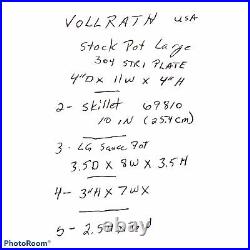 VOLLRATH USA
Stock Pot Large
304 STRI PLATE
4"D X 11W X 4"H
2- Skillet 69810
10 IN (25.4cm)
3- LG Sauce Pot
3.5D X 8W X 3.5H
4- 3"H X 7WX
PhotoRoom